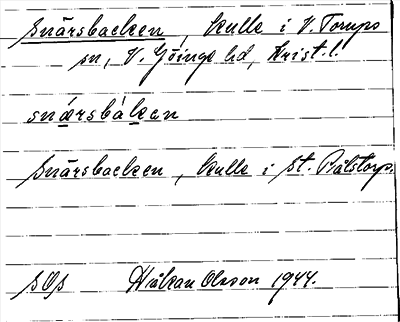 Snärsbacken, kulle i V. Torups
sn, V. Göinge hd, Krist. l.
snærsbákan
Snärsbacken, kulle i St. Pålstorp.
SOS Håkan Olsson 1944.